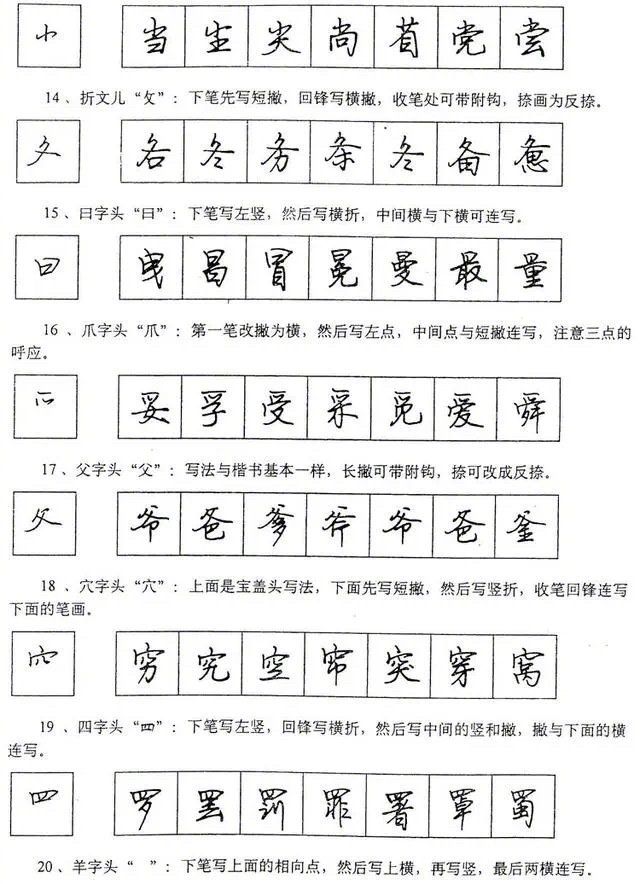 ⺌ 当 尘 尖 尚 党 尝
14、折文儿“攵”：下笔先写短撇，回锋写横撇，收笔处可带附钩，捺画为反捺。
夂 各 冬 务 条 冬 备 惫
15、曰字头“曰”：下笔写左竖，然后写横折，中间横与下横可连写。
曰 曳 昌 冒 冕 曼 最 量
16、爪字头“爪”：第一笔改撇为横，然后写左点，中间点与短撇连写，注意三点的
呼应。
爫 妥 孚 受 采 觅 爱 舜
17、父字头“父”：写法与楷书基本一样，长撇可带附钩，捺可改成反捺。
父 爷 爸 爹 斧 爷 爸 釜
18、穴字头“穴”：上面是宝盖头写法，下面先写短撇，然后写竖折，收笔回锋连写
下面的笔画。
穴 穷 究 空 帘 突 穿 窝
19、四字头“罒”：下笔写左竖，回锋写横折，然后写中间的竖和撇，撇与下面的横
连写。
罒 罗 罢 罚 罪 署 罩 蜀
20、羊字头“ ”：下笔写上面的相向点，然后写上横，再写竖，最后两横连写。